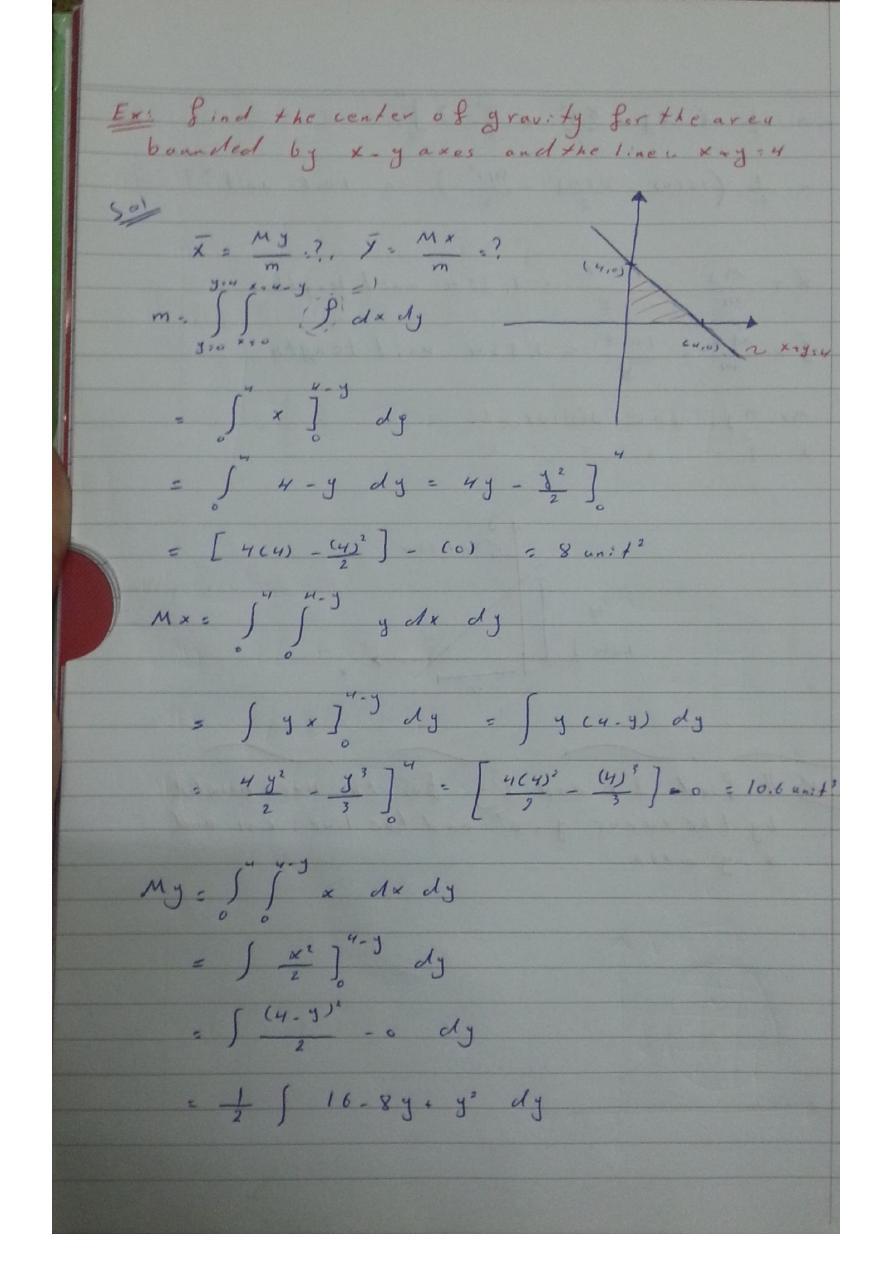 Ex: find the center of gravity for the area
bounded by x-y axes and the line x+y=4
Sol
x̄ = My/m = ?, ȳ = Mx/m = ?
m = ∫_{y=0}^{y=4} ∫_{x=0}^{x=4-y} ρ dx dy
=1
(4,0)
(4,0)
x+y=4
= ∫_0^4 x ]_0^{4-y} dy
= ∫_0^4 4-y dy = 4y - y²/2 ]_0^4
= [4(4) - (4)²/2] - (0) = 8 unit²
Mx = ∫_0^4 ∫_0^{4-y} y dx dy
= ∫ yx ]_0^{4-y} dy = ∫ y(4-y) dy
= 4y²/2 - y³/3 ]_0^4 = [4(4)²/2 - (4)³/3] - 0 = 10.6 unit³
My = ∫_0^4 ∫_0^{4-y} x dx dy
= ∫ x²/2 ]_0^{4-y} dy
= ∫ (4-y)²/2 - 0 dy
= 1/2 ∫ 16-8y+y² dy